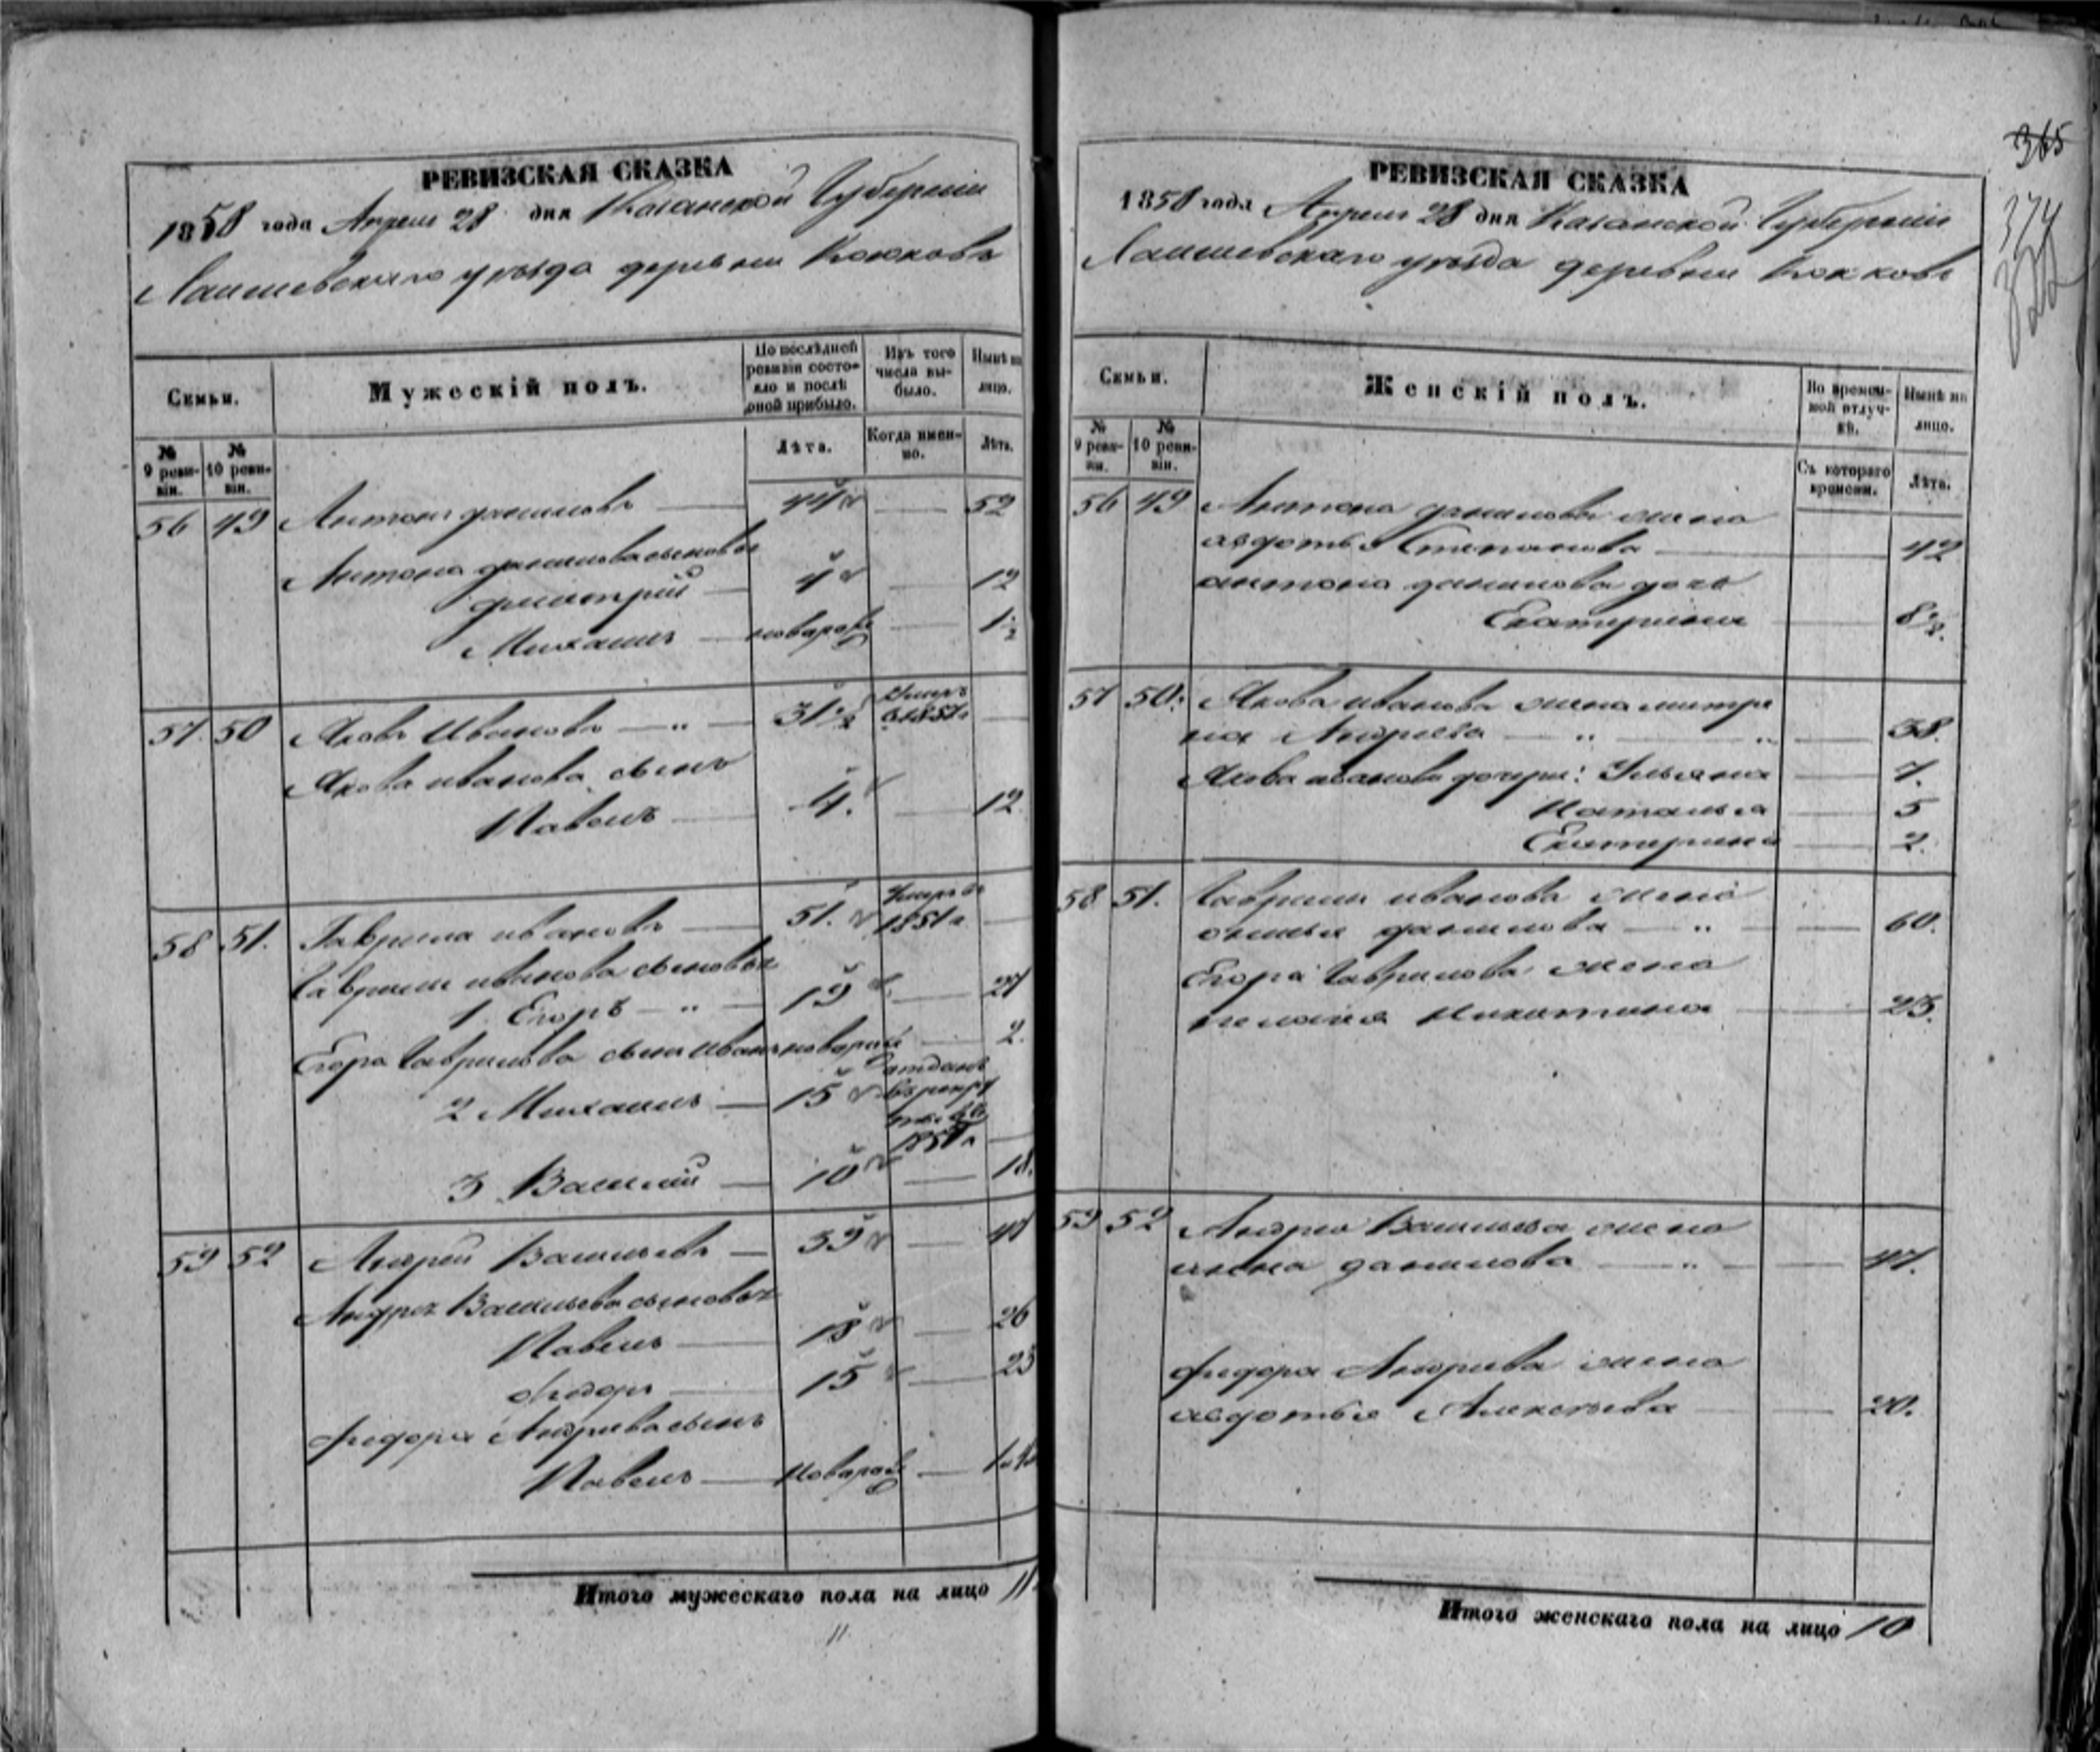 РЕВИЗСКАЯ СКАЗКА
1858 года Апреля 28 дня Казанской Губернии
Лаишевскаго уѣзда деревни Кокковъ
Семьи.
Мужескій полъ.
По послѣдней ревизіи состояло и послѣ оной прибыло.
Изъ того числа выбыло.
Нынѣ на лицо.
№ 9 ревизіи.
№ 10 ревизіи.
Лѣта.
Когда именно.
Лѣта.
56 49 Антонъ даниловъ 44 52
Антона данилова сыновья
дмитрій 4 12
Михаилъ новорож 1 1/2
57. 50 Яковъ Ивановъ 31 1/2 Умеръ в 1857 г
Якова иванова сынъ
Павелъ 4. 12
58 51. Гаврила ивановъ 51. Умеръ в 1851 г
Гаврилы иванова сыновья
1 Егоръ 19 27
Егора Гаврилова сынъ Иванъ новорож 2.
2 Михаилъ 15 отданъ в рекруты в 185
3 Василий 10 18.
59 52 Андрей Васильевъ 39 47
Андрея Васильева сыновья
Павелъ 18 26
федоръ 15 23
федора Андреева сынъ
Павелъ Новорож
Итого мужескаго пола на лицо 11
11
РЕВИЗСКАЯ СКАЗКА
1858 года Апреля 28 дня Казанской Губернии
Лаишевскаго уѣзда деревни Кокковъ
Семьи.
Женскій полъ.
Во временной отлучкѣ.
Нынѣ на лицо.
№ 9 ревизіи.
№ 10 ревизіи.
Съ котораго времени.
Лѣта.
56 49 Антона данилова жена
авдотья Степанова 42
антона данилова дочь
Екатерина 8 1/2.
57 50. Якова иванова жена матре
на Андреева 38.
Якова иванова дочери: Ульяна 7.
Наталья 5
Екатерина 2.
58 51. Гаврилы иванова жена
данилова 60.
Егора Гаврилова жена
пелагея Никитина 25.
59 52 Андрея Васильева жена
данилова 47.
федора Андреева жена
авдотья Алексеева 20.
Итого женскаго пола на лицо 10
365
374